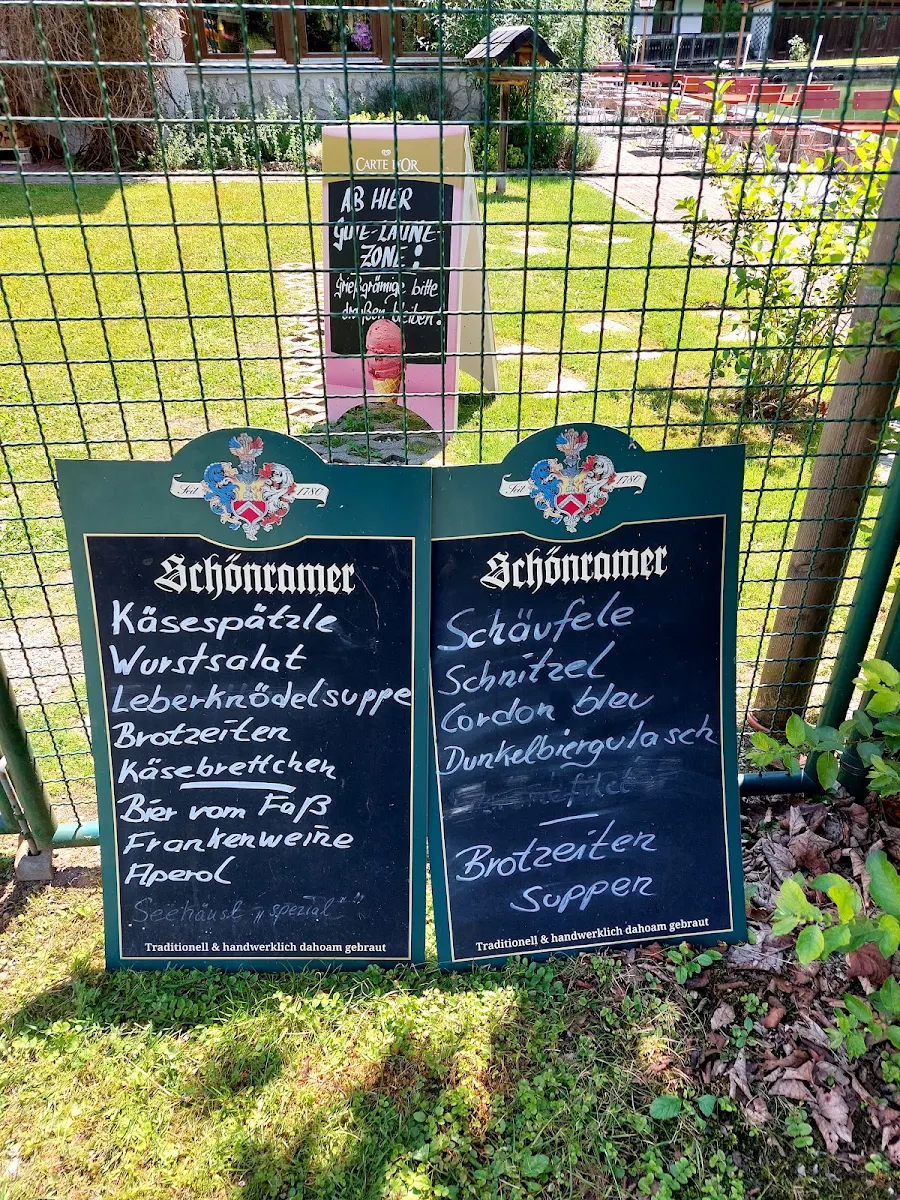 CARTE D'OR
AB HIER
GUTE-LAUNE-
ZONE!
Grießgrämige bitte
draußen bleiben!
Seit 1780
Schönramer
Käsespätzle
Wurstsalat
Leberknödelsuppe
Brotzeiten
Käsebrettchen
Bier vom Faß
Frankenweine
Aperol
Seehäusl "spezial"
Traditionell & handwerklich dahoam gebraut
Seit 1780
Schönramer
Schäufele
Schnitzel
Cordon bleu
Dunkelbiergulasch
Brotzeiten
Suppen
Traditionell & handwerklich dahoam gebraut